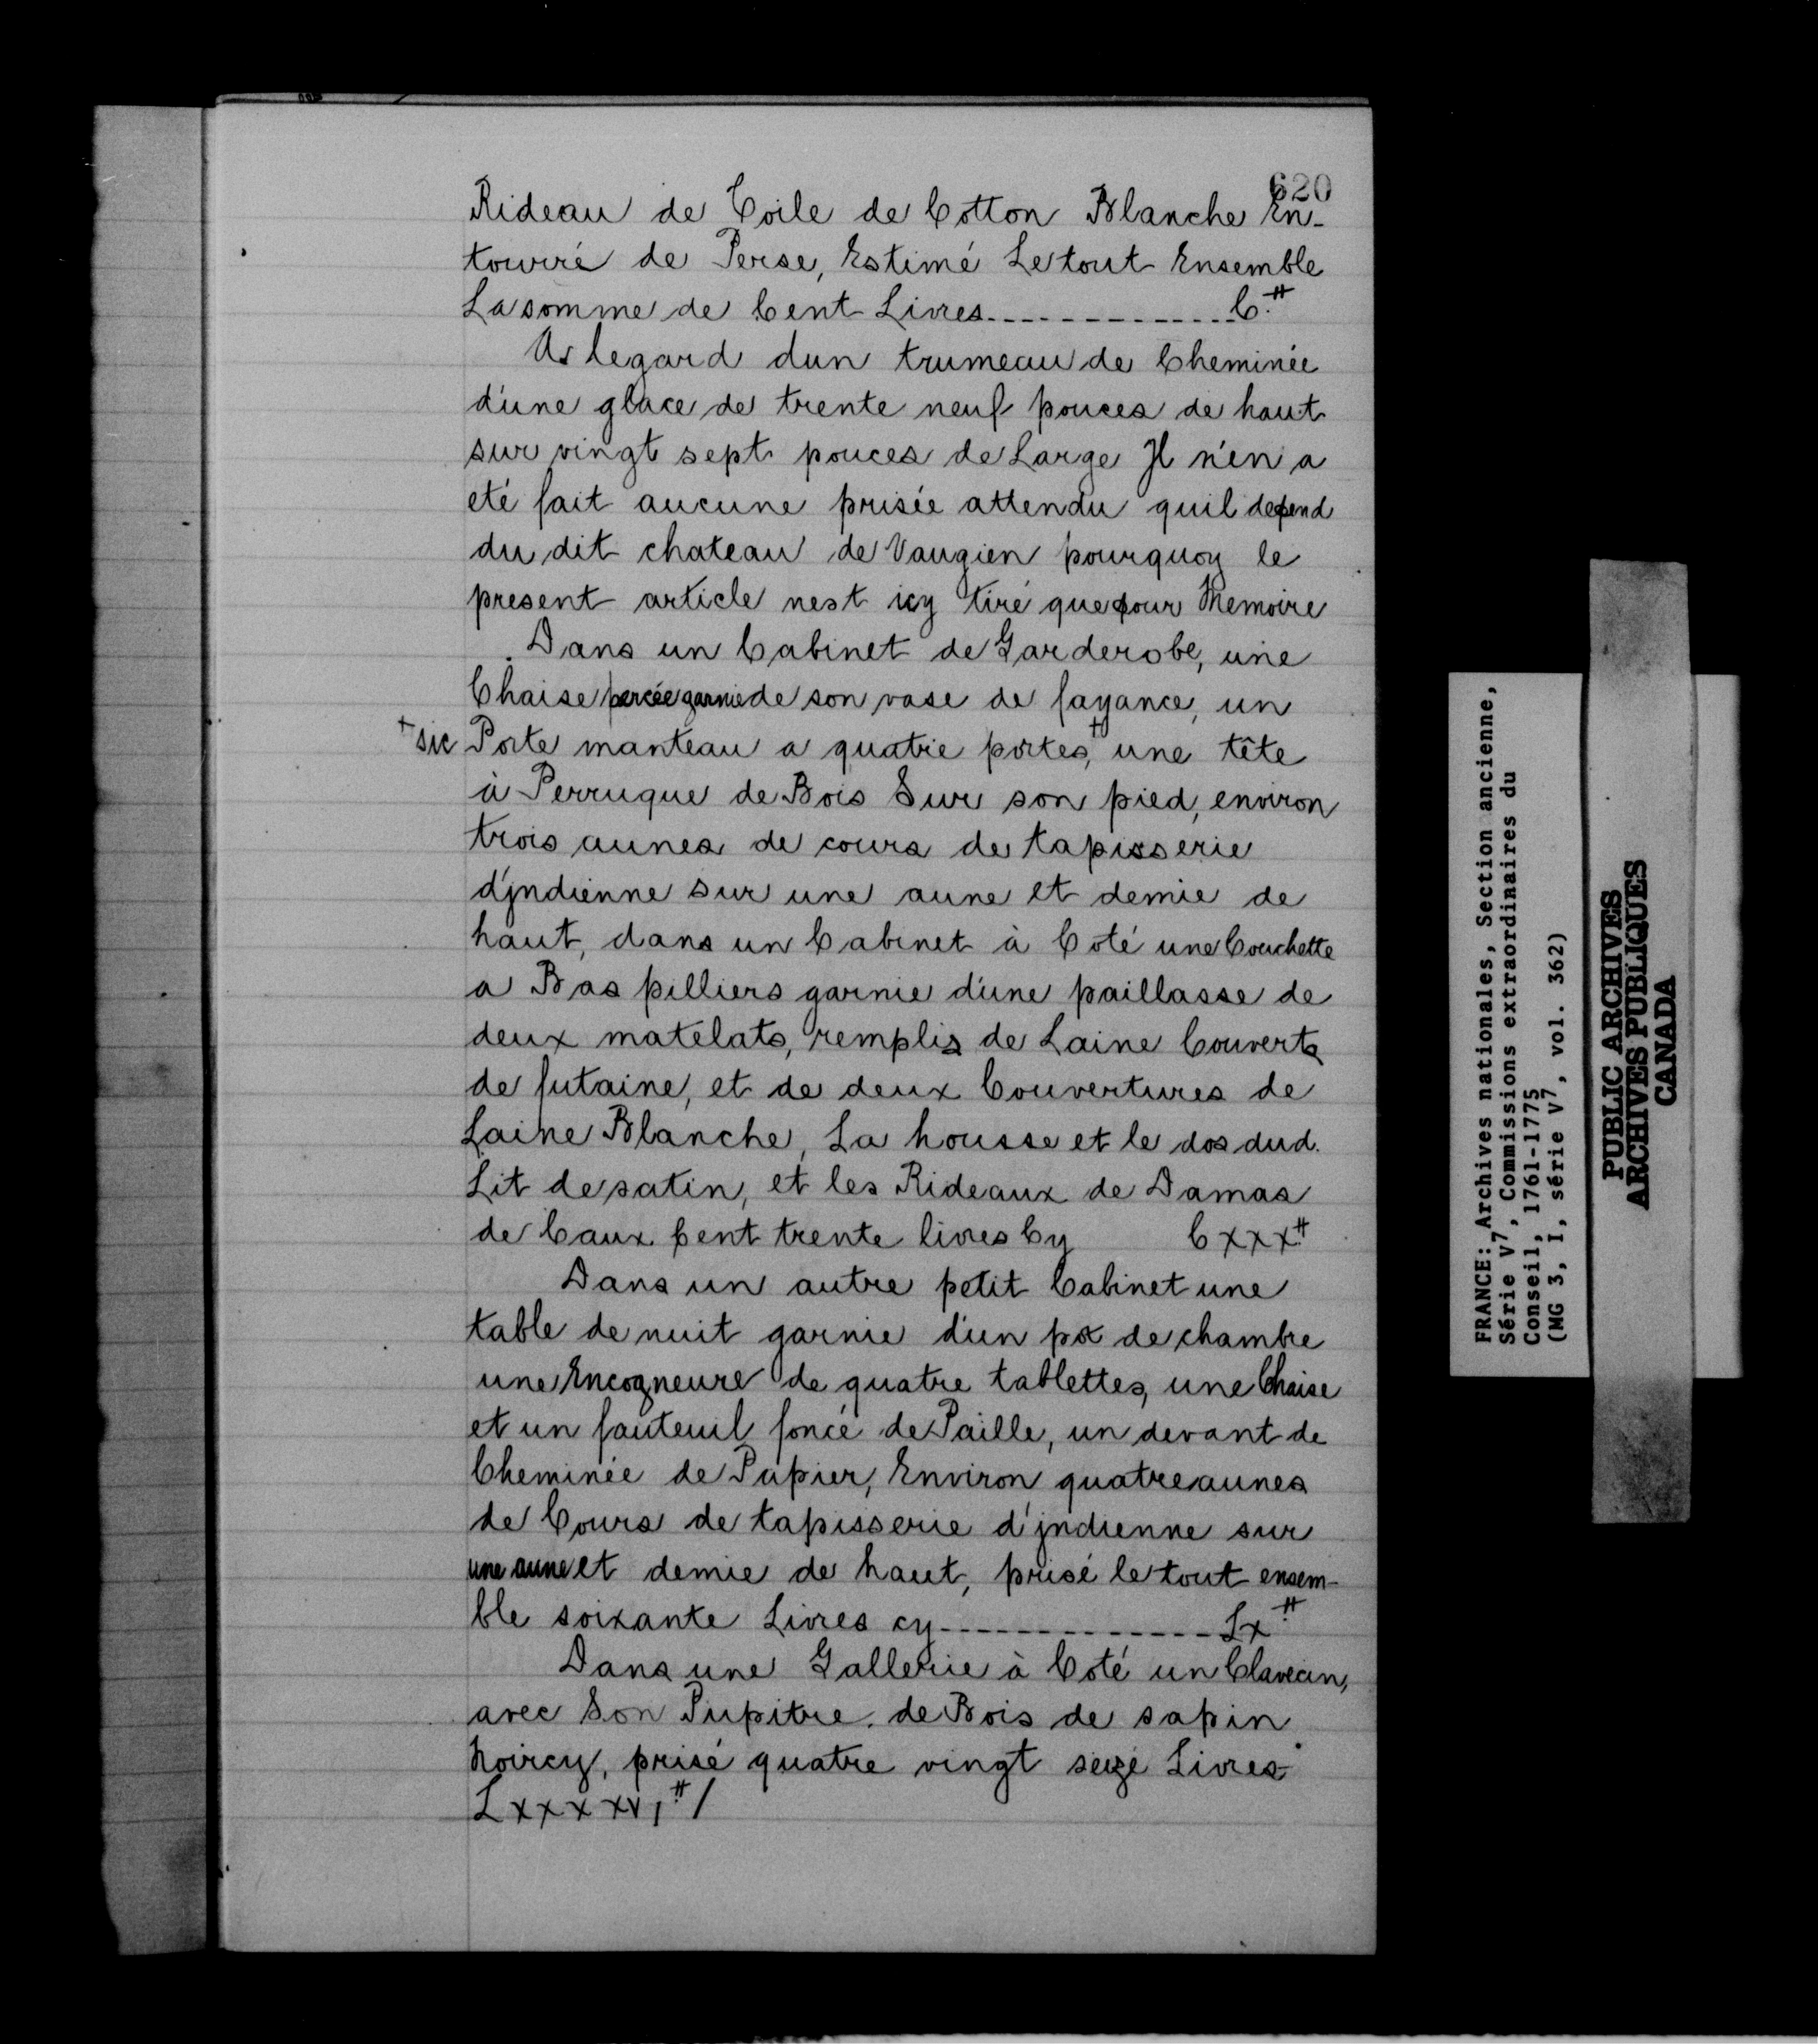 620
Rideau de Toile de Cotton Blanche En-
touré de Perse, Estimé Le tout Ensemble
La somme de Cent Livres.............. C.#
A legard dun trumeau de Cheminée
d'une glace de trente neuf pouces de haut
sur vingt sept pouces de Large Jl n'en a
eté fait aucune prisée attendu quil depend
du dit chateau de Vaugien pourquoy le
present article nest icy tiré que pour Memoire
Dans un Cabinet de Garderobe, une
Chaise percée garnie de son vase de fayance, un
+ sic Porte manteau a quatre portes,+ une tête
à Perruque de Bois Sur son pied, environ
trois aunes de cours de tapisserie
d'jndienne sur une aune et demie de
haut, dans un Cabinet à Coté une Couchette
a Bas pilliers garnie d'une paillasse de
deux matelats, remplis de Laine Couverts
de futaine, et de deux Couvertures de
Laine Blanche, La housse et le dos dud.
Lit de satin, et les Rideaux de Damas
de Caux Cent trente livres Cy CXXX#
Dans un autre petit Cabinet une
table de nuit garnie d'un pot de chambre
une Encogneure de quatre tablettes, une Chaise
et un fauteuil foncé de Paille, un devant de
Cheminée de Papier, Environ quatre aunes
de Cours de tapisserie d'jndienne sur
une aune et demie de haut, prisé le tout ensem-
ble soixante Livres cy.............. Lx#
Dans une Gallerie à Coté un Clavecin,
avec Son Pupitre. de Bois de sapin
Noircy, prisé quatre vingt seize Livres
Lxxxxvi#/
FRANCE: Archives nationales, Section ancienne,
Série V7, Commissions extraordinaires du
Conseil, 1761-1775
(MG 3, I, série V7, vol. 362)
PUBLIC ARCHIVES
ARCHIVES PUBLIQUES
CANADA